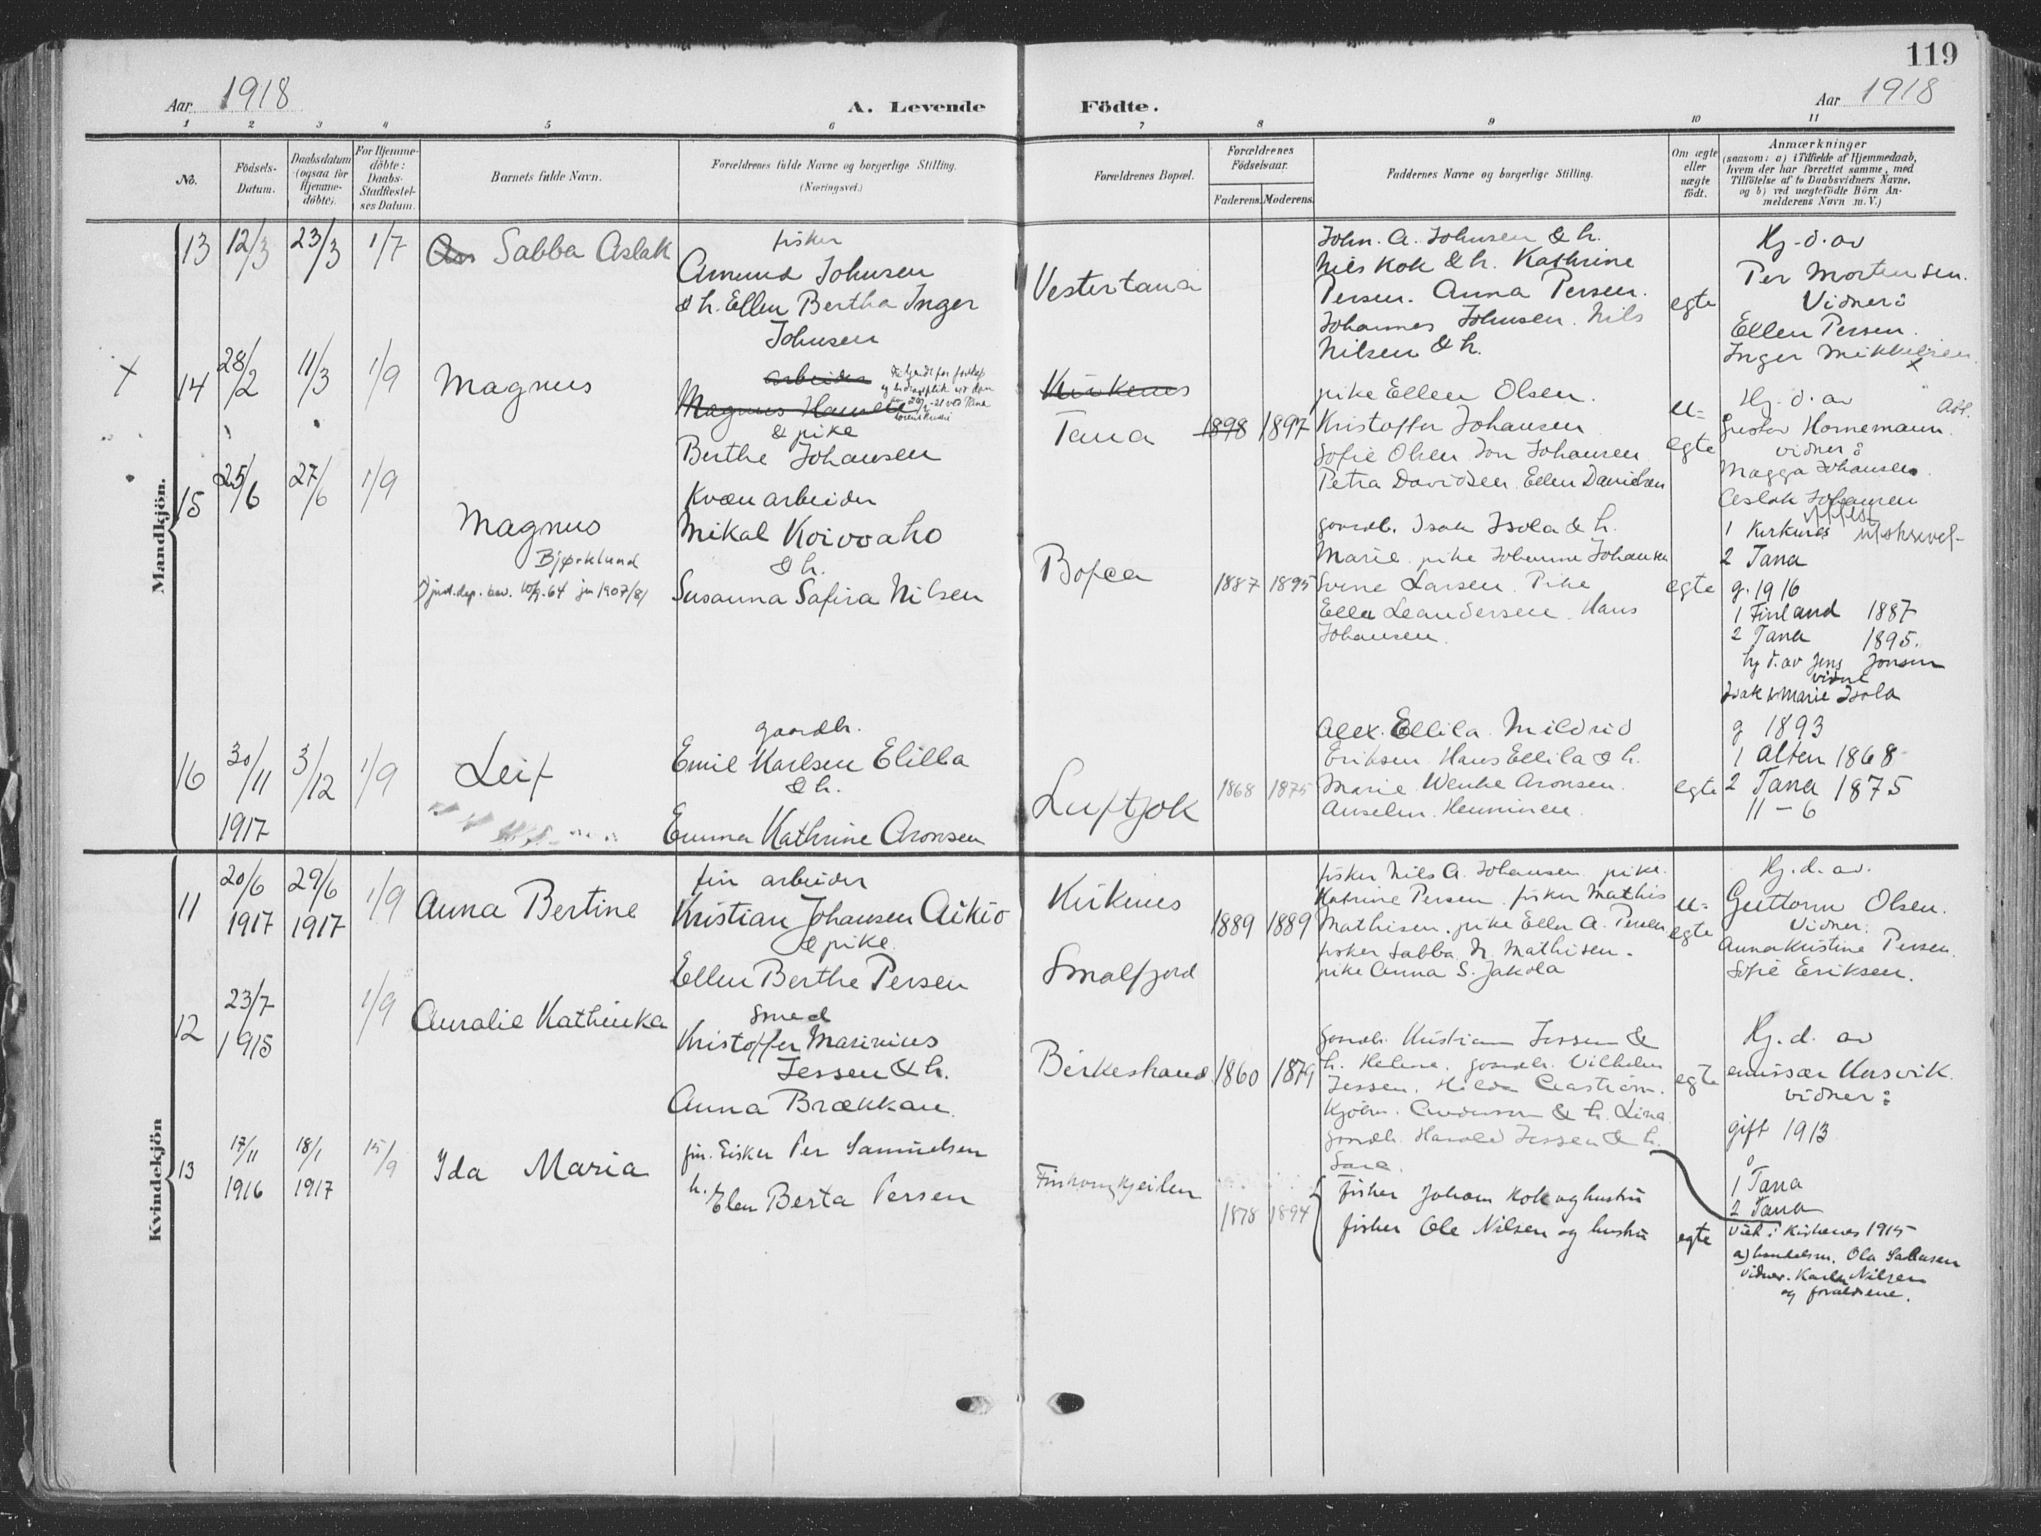 119
Aar 1918
A. Levende Födte.
Aar 1918
1 2 3 4 5 6 7 8 9 10 11
No.
Födsels-Datum.
Daabsdatum (ogsaa for Hjemme-döbte).
For Hjemme-döbte: Daabs-Stadfæstel-ses Datum.
Barnets fulde Navn.
Forældrenes fulde Navne og borgerlige Stilling. (Næringsvei.)
Forældrenes Bopæl.
Forældrenes Födselsaar.
Faderens. Moderens.
Faddernes Navne og borgerlige Stilling.
Om ægte eller uægte födt.
Anmærkninger
(saasom: a) i Tilfælde af Hjemmedaab,
hvem der har forrettet samme, med
Tilföielse af to Daabsvidners Navne,
og b) ved uægtefödte Börn An-
melderens Navn m. V.)
Mandkjön.
13 12/3 23/3 1/7 Sabba Aslak
fisker
Amund Johnsen
& h. Ellen Bertha Inger
Johnsen
Vestertana
John. A. Johnsen & h.
Nils Kok & h. Kathrine
Persen. Anna Persen.
Johannes Johnsen. Nils
Nilsen & h.
egte
Hj. d. av
Per Mortensen.
Vidner:
Ellen Persen.
Inger Mikkelsen
x 14 28/2 11/3 1/9 Magnus
arbeider
Magnus Hansen
& pike
Berthe Johansen
Kirkenes
Tana
1898 1897
pike Ellen Olsen.
Kristoffer Johansen
Sofie Olsen Jon Johansen
Petra Davidsen. Ellen Danielsen
u-
egte
Hj. d. av
Gustav Hornemann.
vidner:
Magga Johansen.
Aslak Johansen
15 25/6 27/6 1/9
Magnus
Bjørklund
Kvæn arbeider
Mikal Koivoaho
& h.
Susanna Safira Nilsen
Bofca
1887 1895
gaardb. Isak Isola & h.
Marie. pike Johanne Johansen
Svene Larsen. Pike
Ella Leandersen. Hans
Johansen.
egte
1 Kirkenes
2 Tana
g. 1916
1 Finland 1887
2 Tana 1895.
hj d. av Jens Jonsen
vidne
Isak & Marie Isola
16 30/11 1917 3/12 1/9 Leif
gaardbr.
Emil Karlsen Elilla
& h.
Emma Kathrine Aronsen
Luftjok
1868 1875
Alex. Ellila. Mildrid
Eriksen. Hans Ellila & h.
Marie. Wenke Aronsen.
Anselm. Henninen.
egte
g 1893
1 Alten 1868
2 Tana 1875
11 - 6
Kvindekjön
11 20/6 1917 29/6 1917 1/9 Anna Bertine
fin arbeider
Kristian Johansen Aikio
& pike
Ellen Berthe Persen
Kirkenes
Smalfjord
1889 1889
fisker Nils A. Johansen. pike.
Katrine Persen. fisker Mathis
Mathisen. pike Ellen A. Persen
fisker Sabba N. Mathisen.
pike Anna S. Jakola
u-
egte
Hj. d. av.
Guttorm Olsen.
Vidner:
Anna Kristine Persen.
Sofie Eriksen.
12 23/7 1915 1/9 Auralie Kathinka
Smed
Kristoffer Marinius
Jessen & h.
Anna Brækkan.
Birkestrand
1860 1879
Gaardb. Kristian Jessen &
h. Helene. gaardb. Vilhelm
Jessen. Hilda
Kjöbm. & h. Lina
gaardb. Harald Jessen & h.
Sara.
egte
Hj. d. av
emissær Korsvik.
vidner:
gift 1913
13 17/11 1916 18/1 1917 15/9 Ida Maria
fin. Fisker Per Samuelsen
h. Elen Berta Persen
1878 1894
fisker Johan Kok og hustru
fisker Ole Nilsen og hustru
egte
1 Tana
2 Tana
viet i Kirkenes 1915
a) handelsm. Ola Sabasen
vidner. Karl Nilsen
og forældrene.